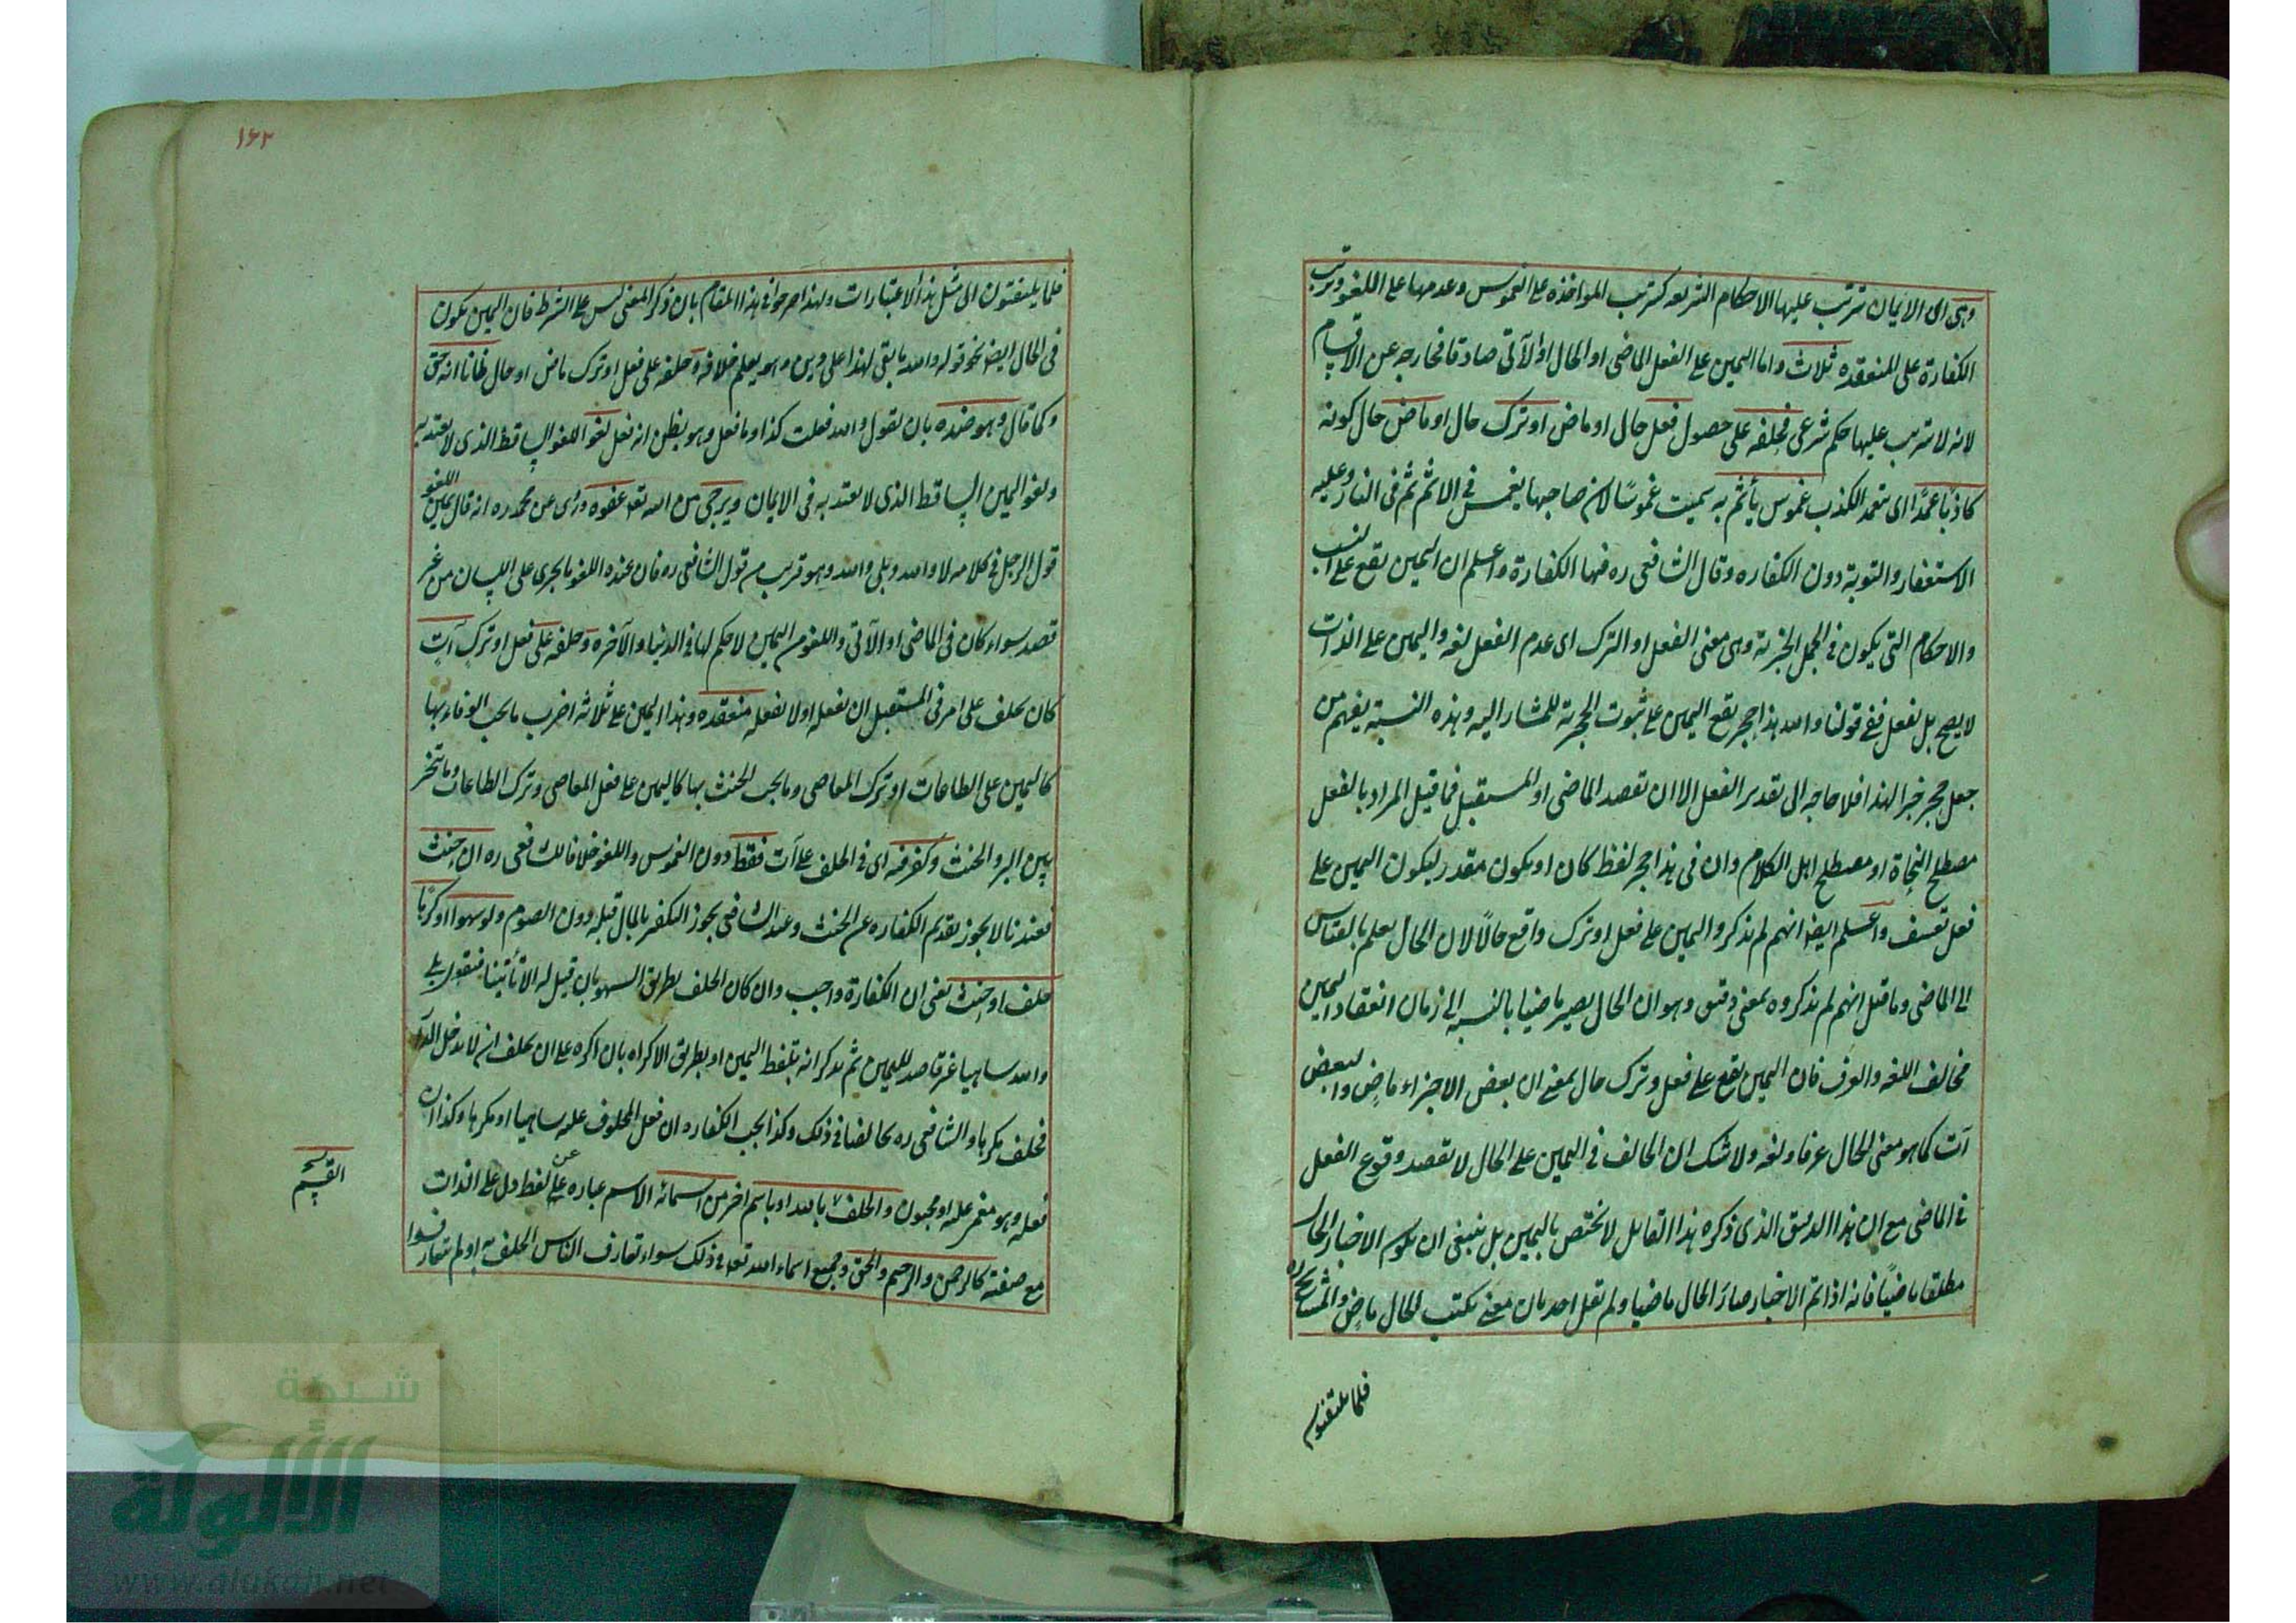 وهى اى الايمان ترتب عليها الاحكام الشرعيه كترتب المواخذه على الغموس وعدمها على اللغو وترتب
الكفارة على المنعقده ثلاث واما اليمين على الفعل الماضى او الحال او الآتى صادقا فخارجه عن الاقسام
لانه لا يترتب عليها حكم شرعى فحلفه على حصول فعل حال او ماض او ترك حال او ماض حال كونه
كاذبًا عمدًا اى يتعمد الكذب غموس يأثم به سميت غموسًا لان صاحبها ينغمس فى الاثم ثم فى النار وعليه
الاستغفار والتوبة دون الكفاره وقال الشافعى ره فيها الكفارة واعلم ان اليمين يقع على النسب
والاحكام التى يكون فى الجمل الخبرية وهى معنى الفعل او الترك اى عدم الفعل لغه واليمين على الذات
لا يصح بل بفعل ففى قولنا والله هذا حجر يقع اليمين على ثبوت الحجرية للمشار اليه وهذه النسبة يفهم من
جعل حجر خبرا لهذا فلا حاجه الى تقدير الفعل الا ان تقصد الماضى او المستقبل فما قيل المراد بالفعل
مصطلح النحاة او مصطلح اهل الكلام وان فى هذا حجر لفظ كان او يكون مقدر ليكون اليمين على
فعل تعسف واعلم ايضا انهم لم يذكروا اليمين على فعل او ترك واقع حالًا لان الحال يعلم بالقياس
الى الماضى وما قيل انهم لم يذكروه بمعنى دقيق وهو ان الحال يصير ماضيا بالنسبه الى زمان انعقاد اليمين
مخالف اللغه والعرف فان اليمين يقع على فعل وترك حال بمعنى ان بعض الاجزاء ماضٍ والبعض
آت كما هو معنى الحال عرفا ولغه ولا شك ان الحالف فى اليمين على الحال لا يقصد وقوع الفعل
فى الماضى مع ان هذا الدقيق الذى ذكره هذا القايل لا يختص باليمين بل ينبغى ان يكون الاخبار الحال
مطلقا ماضيًا فانه اذا تم الاخبار صار الحال ماضيا ولم يقل احد بان معنى يكتب للحال ماضٍ والمشايخ ره
فلما يلتفتون
١٦٢
فلما يلتفتون الى مثل هذا الاعتبارات ولهذا صرحوا فى هذا المقام بان ذكر المعنى ليس على الشرط فان اليمين يكون
فى الحال ايضا نحو قوله والله ما بقى لهذا على دين وهو يعلم خلافه وحلفه على فعل او ترك ماض او حال ظانا انه حق
وكما قال وهو ضده بان يقول والله فعلت كذا وما فعل وهو يظن انه فعل لغو اللغو الساقط الذى لا يعتد به
ولغو اليمين الساقط الذى لا يعتد به فى الايمان ويرجى من الله تعه عفوه وروى عن محمد ره انه قال يمين اللغو
قول الرجل فى كلامه لا والله وبلى والله وهو قريب من قول الشافعى ره فان عنده اللغو ما يجرى على اللسان من غير
قصد سواء كان فى الماضى او الآتى واللغو من اليمين لا حكم لها فى الدنيا والآخره وحلفه على فعل او ترك آتٍ
كان يحلف على امر فى المستقبل ان يفعله او لا يفعله منعقده وهذا اليمين على ثلاثه اضرب ما يجب الوفاء بها
كاليمين على الطاعات او ترك المعاصى وما يجب الحنث بها كاليمين على فعل المعاصى وترك الطاعات وما يتخير
بين البر والحنث وكفر فيه اى فى الحلف على آت فقط دون الغموس واللغو خلافا للشافعى ره ان حنث
فعندنا لا يجوز تقديم الكفاره عن الحنث وعند الشافعى يجوز التكفير بالمال قبله دون الصوم ولو سهوا او كرهًا
حلف او حنث يعنى ان الكفارة واجب وان كان الحلف بطريق السهو بان قيل له الا تأتينا فيقول بلى
والله ساهيا غير قاصد لليمين ثم يذكر انه تلفظ اليمين او بطريق الاكراه بان اكره على ان يحلف ان لا يدخل الدار
فحلف مكرها والشافعى ره يخالفنا فى ذلك وكذا يجب الكفاره ان فعل المحلوف عليه ساهيا او مكرها وكذا ان
فعله وهو مغمى عليه او مجنون والحلف بالله او باسم اخر من اسمائه الاسم عباره عن لفظ دل على الذات
مع صفة كالرحمن والرحيم والحق وجميع اسماء الله تعه فى ذلك سواء تعارف الناس الحلف به او لم يتعارفوا
القسم
شبكة
الألوكة
www.alukah.net